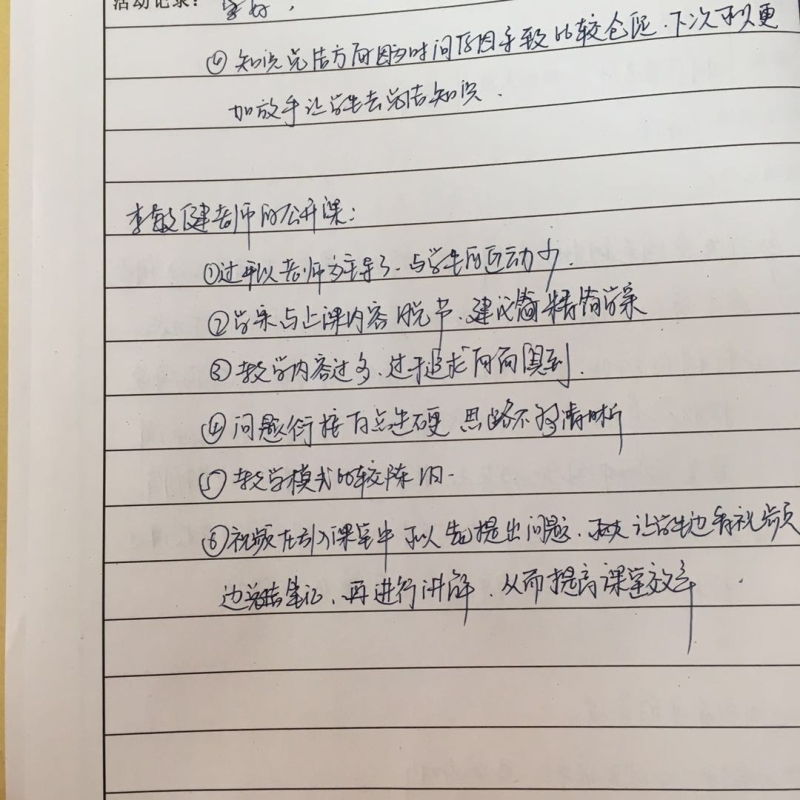 活动记录：更好，
④ 知识总结方面因为时间原因导致比较仓促．下次可以更
加放手让学生去总结知识．
李敏健老师的公开课：
①过于以老师为主导了．与学生的互动少．
②学案与上课内容脱节．建议简精简学案
③教学内容过多．过于追求面面俱到．
④问题衔接有点生硬 思路不够清晰
⑤教学模式比较陈旧．
⑥视频在引入课堂中可以先提出问题．让学生边看视频
边总结笔记．再进行讲解．从而提高课堂效率．